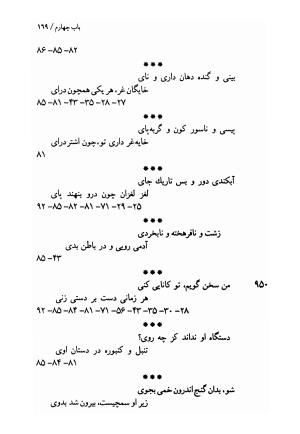 باب چهارم / ۱۶۹
۸۶ -۸۵ -۸۲
***
بینی و گنده دهان داری و نای
خایگان غر، هر یکی همچون درای
۸۵ -۸۱ -۴۳ -۳۵ -۲۸ -۲۷
***
پیسی و ناسور کون و گربه‌پای
خایه‌غر داری تو، چون اشتر درای
۸۱
***
آبکندی دور و بس تاریك جای
لغز لغزان چون درو بنهند پای
۹۲ -۸۵ -۸۲ -۸۱ -۷۱ -۲۹ -۲۵
***
زشت و نافرهخته و نابخردی
آدمی رویی و در باطن بدی
۸۵ -۴۳
***
۹۵۰ من سخن گویم، تو کانایی کنی
هر زمانی دست بر دستی زنی
۹۲ -۸۵ -۸۴ -۸۱ -۷۱ -۵۶ -۴۳ -۳۵ -۳۰ -۲۸
***
دستگاه او نداند کز چه روی؟
تنبل و کنبوره در دستان اوی
۸۵ -۸۴ -۸۱
***
شو، بدان گنج اندرون خمی بجوی
زیر او سمچیست، بیرون شد بدوی